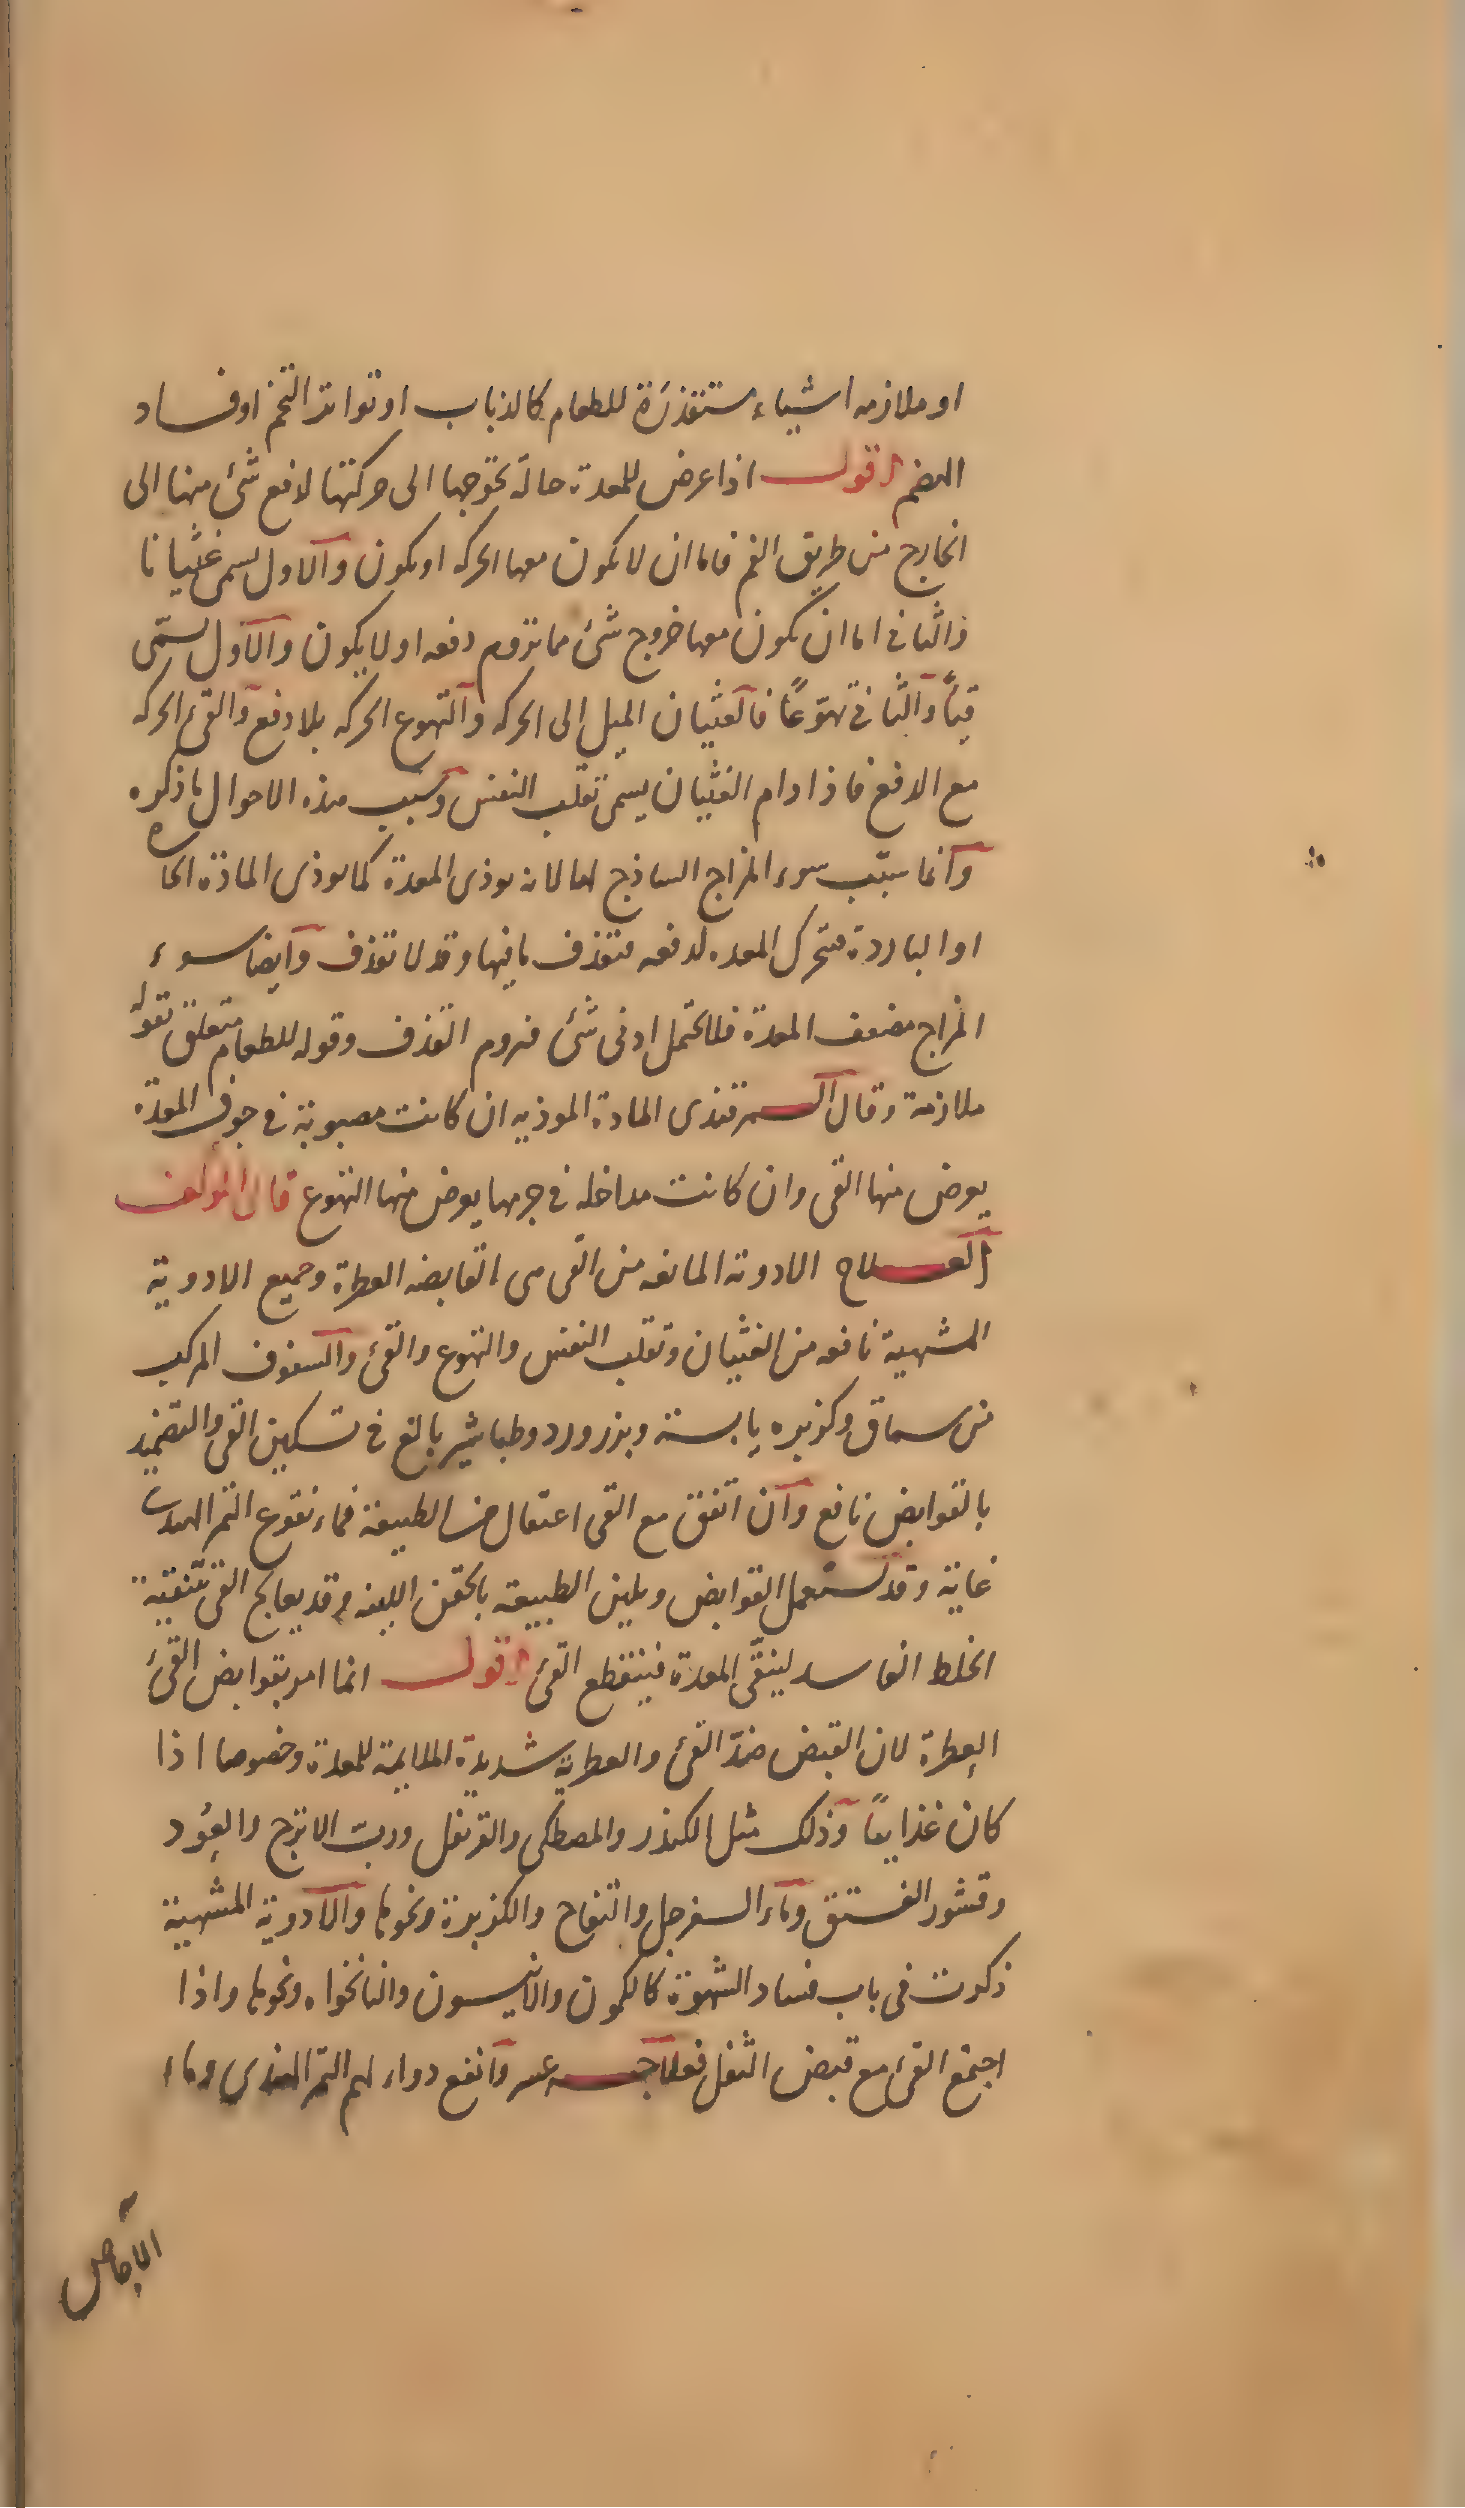 او ملازمه اشياء مستقذرة للطعام كالذباب او تواتر التخم او فساد
الهضم اقول اذا عرض للمعدة حالة تحوجها الى حركتها لدفع شئ منها الى
الخارج من طريق الفم فاما ان لا يكون معها الحركه او يكون والاول يسمى غثيانا
والثانى اما ان يكون معها خروج شئ مما تروم دفعه او لا يكون والاول يسمّى
قيأ والثانى تهوّعًا فالغثيان الميل الى الحركه والتهوع الحركه بلا دفع والقئ الحركه
مع الدفع فاذا دام الغثيان يسمى تقلب النفس وسبب هذه الاحوال ما ذكره
وانما سبّب سوء المزاج الساذج لها لانه يوذى المعدة كما يوذى المادة الحاره
او الباردة فتحرك المعده لدفعه فتقذف ما فيها وقد لا تقذف وايضا سوء
المزاج مضعف المعدة فلا تحتمل ادنى شئ فتروم القذف وقوله للطعام متعلق بقوله
ملازمة وقال السمرقندى المادة الموذيه ان كانت مصبوبة فى جوف المعدة
يعرض منها القى وان كانت مداخله فى جرمها يعرض منها التهوع قال المولف
العلاج الادوية المانعه من القى هى القابضه العطرة وجميع الادوية
المشهية نافعه من الغثيان وتقلب النفس والتهوع والقئ والسفوف المركب
من سماق وكزبره يابسة وبزر ورد وطباشير بالغ فى تسكين القى والتضميد
بالقوابض نافع وان اتفق مع القى اعتقال من الطبيعة فماء نقوع التمر الهندى
غاية وقد تستعمل القوابض ويلين الطبيعة بالحقن اللينه وقد يعالج القى بتنقية
الخلط الفاسد لينقّى المعدة فينقطع القئ اقول انما امر بقوابض القئ
العطرة لان القبض ضدّ القئ والعطرية شديدة الملايمة للمعدة وخصوصا اذا
كان غذايعًا وذلك مثل الكندر والمصطكى والقرنفل وربّ الاترج والعود
وقشور الفستق وماء السفرجل والتفاح والكزبرة ونحوها والادوية المشهية
ذكرت فى باب فساد الشهوة كالكمون والانيسون والنانخواه ونحوها واذا
اجتمع القئ مع قبض الثفل فعلاجه عسر وانفع دواء لهم التمر الهندى وماء
الاجاص